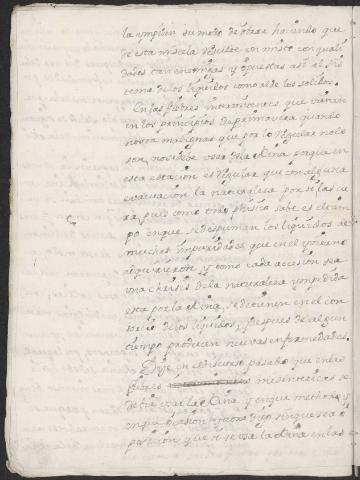 la impiden su modo de obrar haciendo que
de esta mescla resulte un misto con quali
dades tan enemigas y opuestas asi al sis
tema de los liquidos como al de los solidos.
En las fiebres intermitentes que vienen
en los principios de primavera quando
no son malignas que por lo regular no lo
son, no se debe usar de la Kina porque en
esta estacion es regular que con alguna
evacuacion la naturaleza por si las cu
ra, pues como todo phisico sabe es el tiem
po en que se despuman los liquidos de
muchas impuridades que en el ynvierno
adquirieron, y como cada accesion sea
una chrisis de la naturaleza ympedida
esta por la Kina, se detienen en el con
sorcio de los liquidos, y despues de algun
tiempo producen nuevas enfermedades.
Dije en el discurso pasado que en las
fiebres mesentericas se
debia usar la Kina y en que methodo, y
en que ocasion, y aora digo sin que sea o
posicion que si se usa la Kina en las